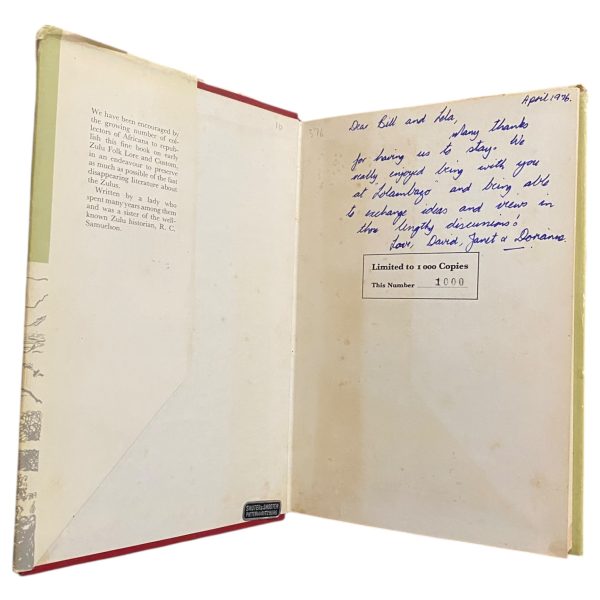 We have been encouraged by
the growing number of col-
lectors of Africana to repub-
lish this fine book on early
Zulu Folk Lore and Custom,
in an endeavour to preserve
as much as possible of the fast
disappearing literature about
the Zulus.
Written by a lady who
spent many years among them
and was a sister of the well-
known Zulu historian, R. C.
Samuelson.
SHUTER & SHOOTER
PIETERMARITZBURG
10
576
April 1976.
Dear Bill and Lola,
Many thanks
for having us to stay. We
really enjoyed being with you
at "Lolambazo" and being able
to exchange ideas and views in
those lengthy discussions!
Love, David, Janet &
Limited to 1000 Copies
This Number 1000